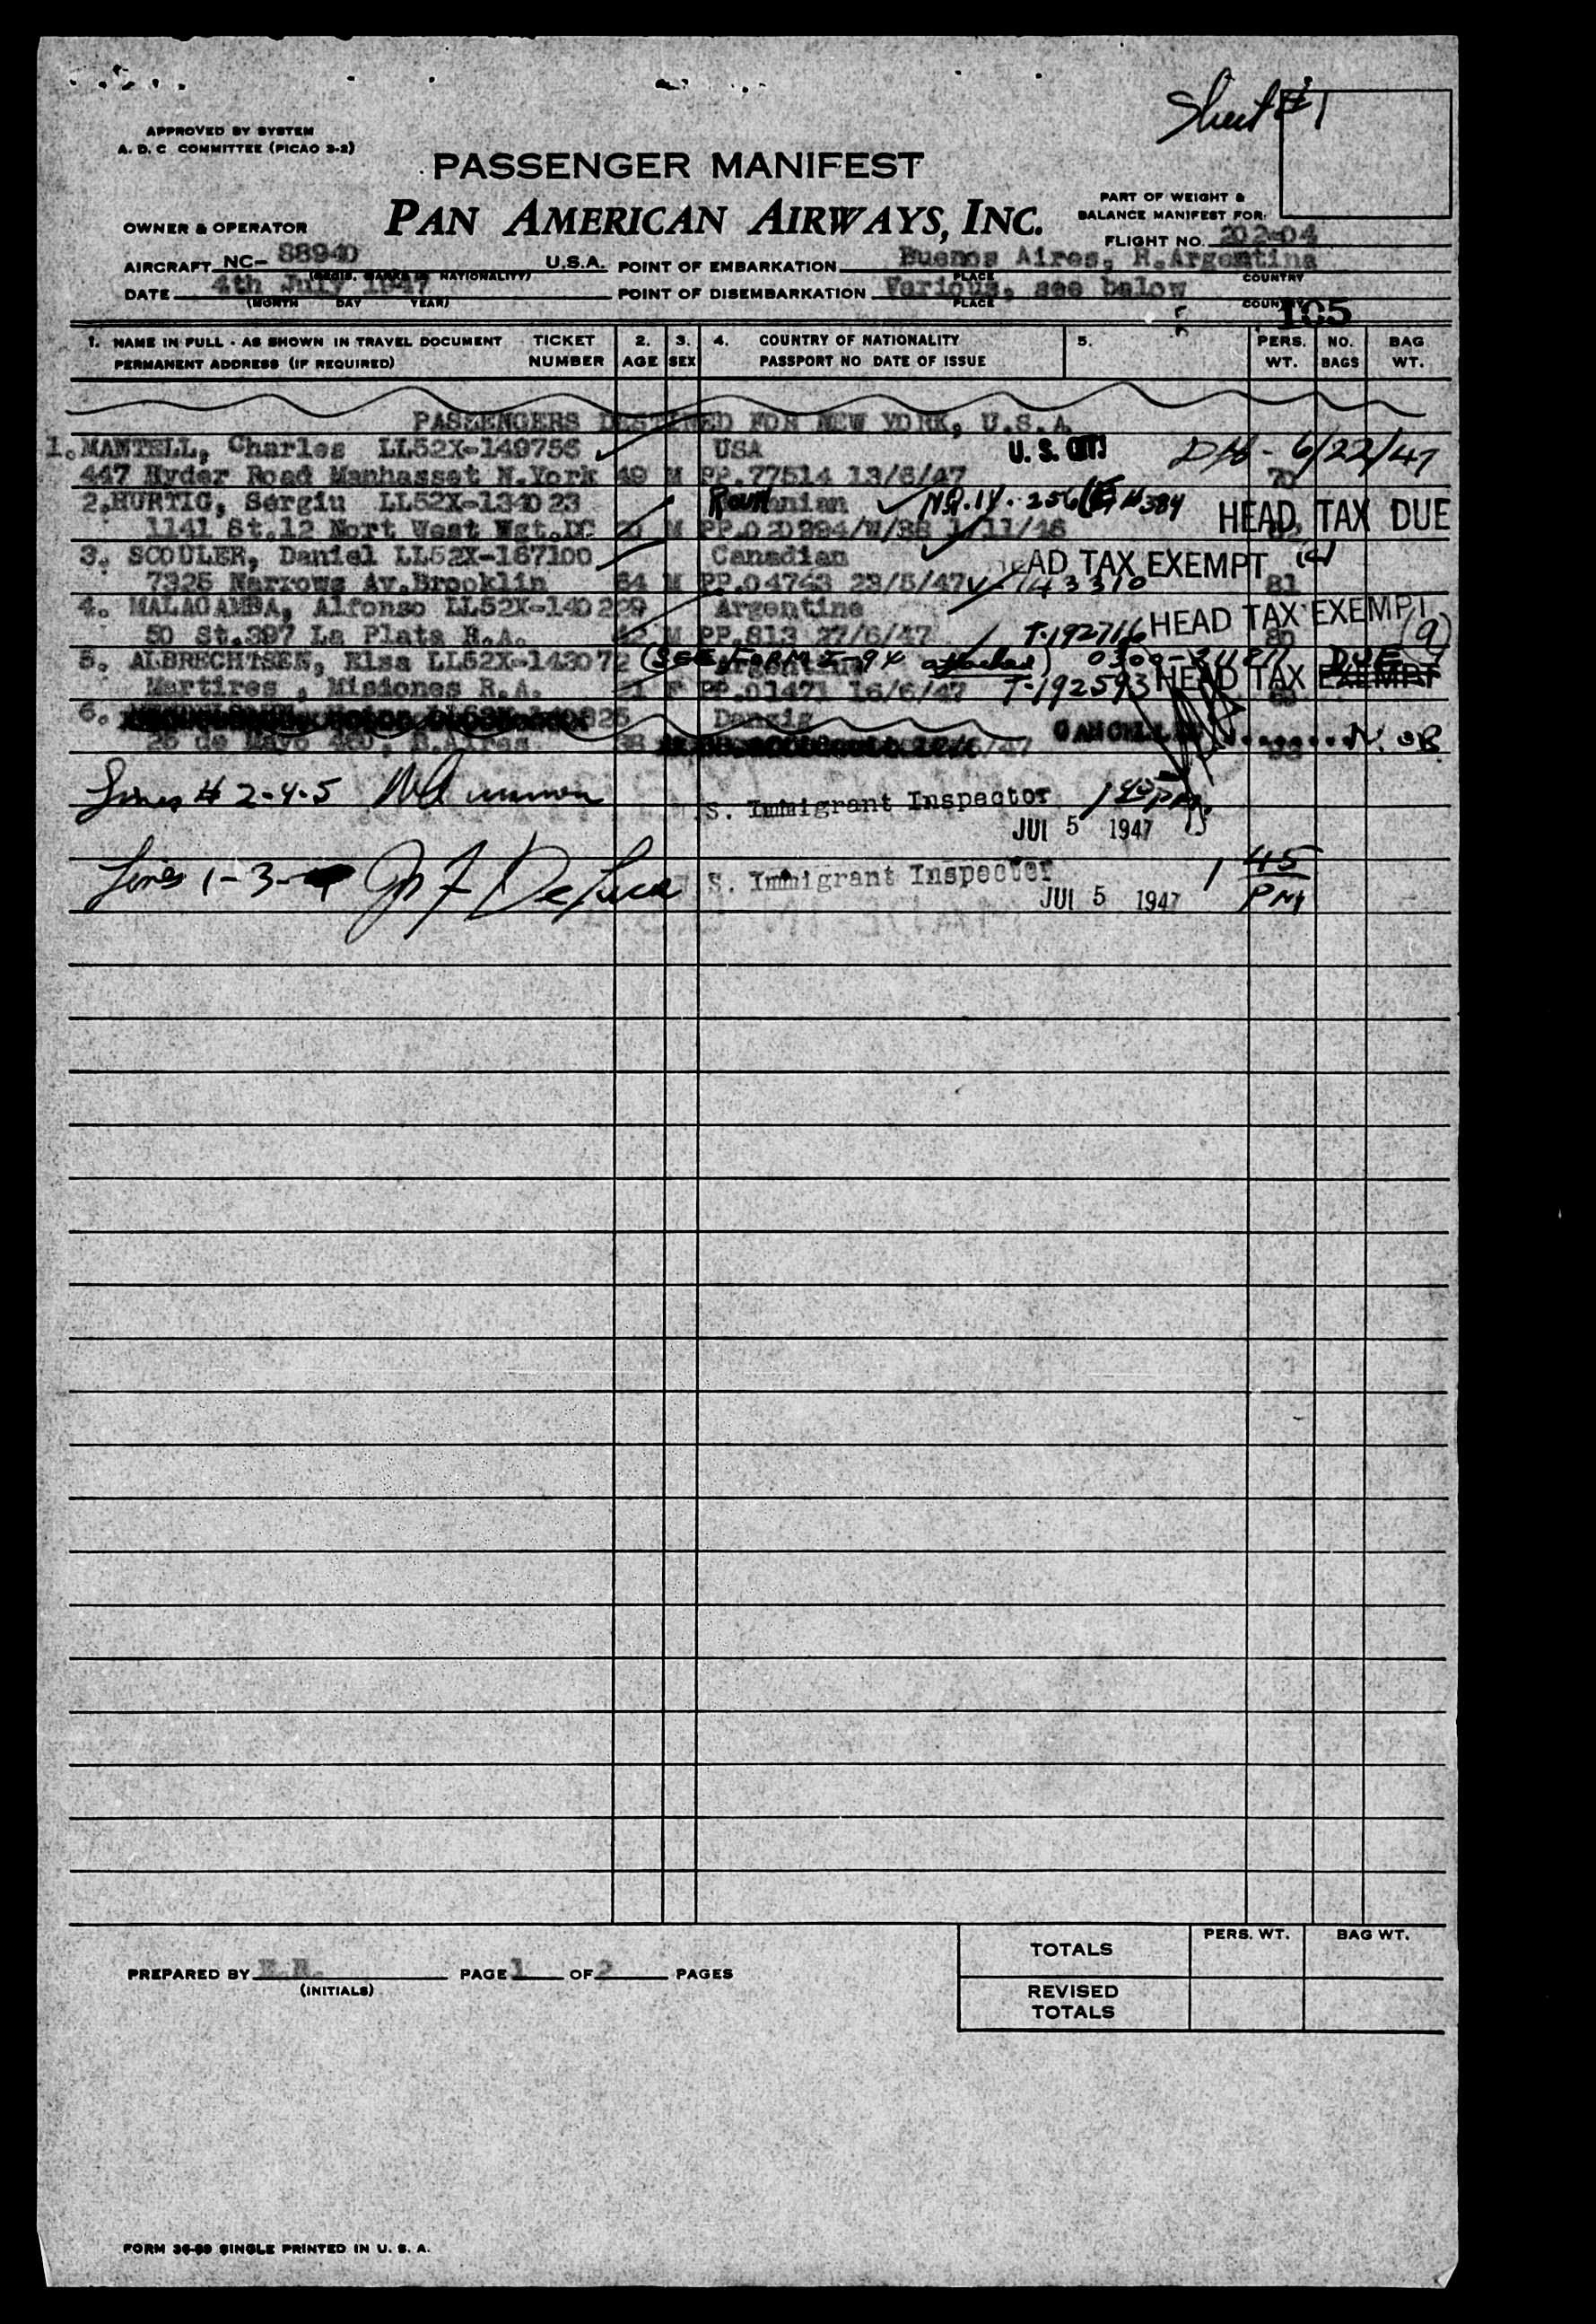 Sheet #1
APPROVED BY SYSTEM
A. D. C COMMITTEE (PICAO 3-2)
PASSENGER MANIFEST
PAN AMERICAN AIRWAYS, INC.
PART OF WEIGHT &
BALANCE MANIFEST FOR:
OWNER & OPERATOR
FLIGHT NO. 202-04
AIRCRAFT NC- 88940 U.S.A. POINT OF EMBARKATION Buenos Aires, R.Argentina
(REGIS. MARKS & NATIONALITY) PLACE COUNTRY
DATE 4th July 1947 POINT OF DISEMBARKATION Various, see below
(MONTH DAY YEAR) PLACE COUNTRY
105
1. NAME IN FULL - AS SHOWN IN TRAVEL DOCUMENT TICKET 2. 3. 4. COUNTRY OF NATIONALITY 5. PERS. NO. BAG
PERMANENT ADDRESS (IF REQUIRED) NUMBER AGE SEX PASSPORT NO DATE OF ISSUE WT. BAGS WT.
PASSENGERS DESTINED FOR NEW YORK, U.S.A
1. MANTELL, Charles LL52X-149756 USA U. S. CIT. 6/22/47
447 Ryder Road Manhasset N.York 49 M PP.77514 13/6/47 70
2. HURTIG, Sergiu LL52X-134023 Roumanian N.Q.IV. 256 HEAD TAX DUE
1141 St.12 Nort West Wgt.DC M PP.020994/W/38 1/11/46
3. SCOULER, Daniel LL52X-167100 Canadian HEAD TAX EXEMPT
7325 Narrows Av.Brooklin 64 M PP.04743 23/5/47 V-143310 81
4. MALAGAMBA, Alfonso LL52X-140229 Argentine HEAD TAX EXEMPT
50 St.397 La Plata R.A. M PP.813 27/6/47 T-192716 80 (9)
5. ALBRECHTSEN, Elsa LL52X-143072 (SEE FORM I-94 attached) DUE
Martires, Misiones R.A. F PP.01471 16/6/47 T-192593 HEAD TAX EXEMPT
6. Danzig
25 de Mayo 460, B.Aires 38 CANCELLED N.OB
Lines # 2-4-5 S. Immigrant Inspector
JUL 5 1947
Lines 1-3- Jn F DeLuca S. Immigrant Inspector 1 45
JUL 5 1947 PM
TOTALS PERS. WT. BAG WT.
PREPARED BY PAGE 1 OF 2 PAGES
(INITIALS)
REVISED
TOTALS
FORM 36-99 SINGLE PRINTED IN U. S. A.